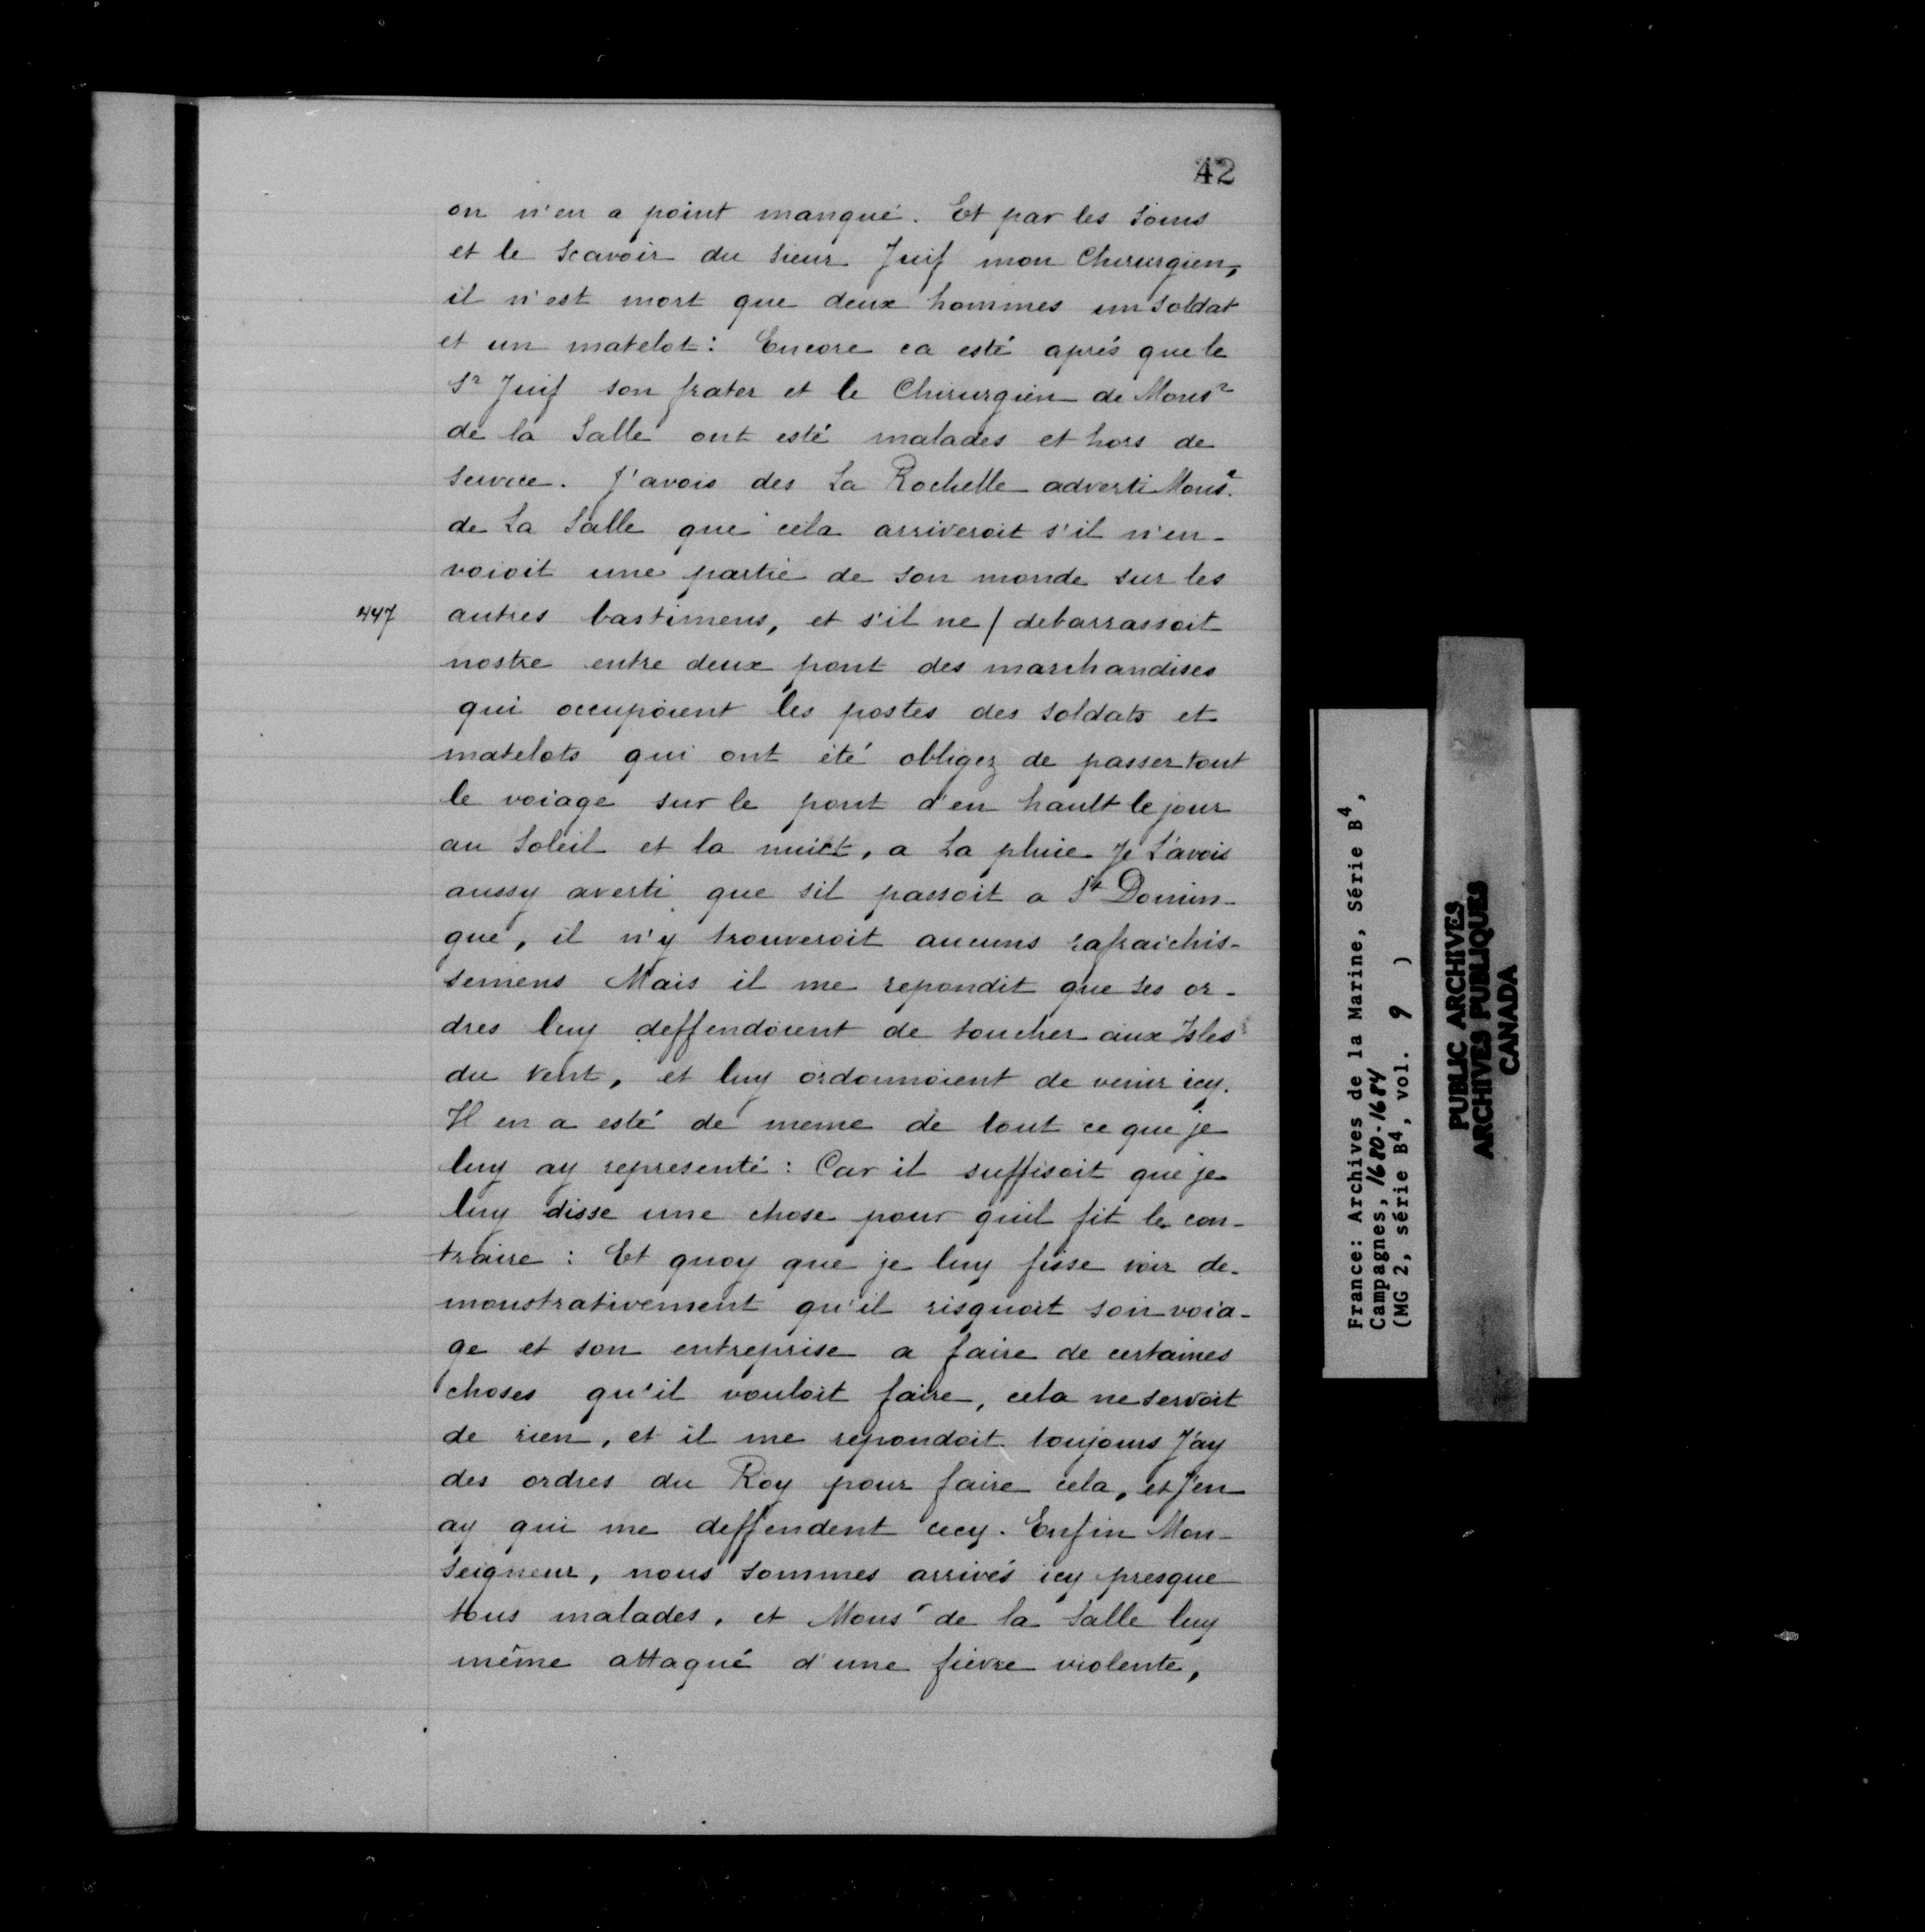 42
on n'en a point manqué. Et par les soins
et le scavoir du sieur Juif mon Chirurgien,
il n'est mort que deux hommes un soldat
et un matelot: Encore ca esté aprés que le
Sr Juif son frater et le Chirurgien de Monsr
de la Salle ont esté malades et hors de
service. J'avois des La Rochelle adverti Monsr.
de La Salle que cela arriveroit s'il n'en-
voioit une partie de son monde sur les
447 autres bastimens, et s'il ne / debarrassoit
nostre entre deux pont des marchandises
qui occupoient les postes des soldats et
matelots qui ont été obligez de passer tout
le voiage sur le pont d'en hault le jour
au Soleil et la nuict, a La pluie Je L'avois
aussy averti que sil passoit a St Domin-
gue, il n'y trouveroit aucuns rafraichis-
semens Mais il me repondit que ses or-
dres luy deffendoient de toucher aux Isles
du Vent, et luy ordonnoient de venir icy.
Il en a esté de meme de tout ce que je
luy ay representé: Car il suffisoit que je
luy disse une chose pour quil fit le con-
traire: Et quoy que je luy fisse voir de-
monstrativement qu'il risquoit son voia-
ge et son entreprise a faire de certaines
choses qu'il vouloit faire, cela ne servoit
de rien, et il me repondoit toujours J'ay
des ordres du Roy pour faire cela, et J'en
ay qui me deffendent cecy. Enfin Mon-
seigneur, nous sommes arrivés icy presque
tous malades, et Monsr de la Salle luy
même attaqué d'une fievre violente,
France: Archives de la Marine, Série B4,
Campagnes, 1680-1684
(MG 2, série B4, vol. 9 )
PUBLIC ARCHIVES
ARCHIVES PUBLIQUES
CANADA